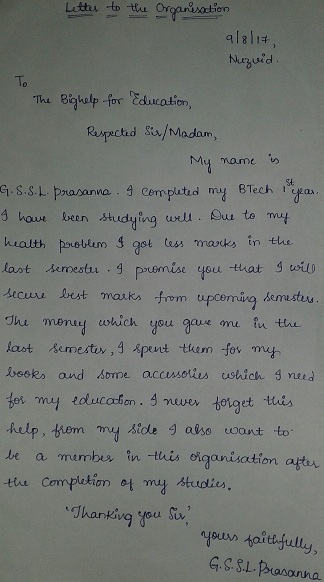 Letter to the Organisation
9/8/17,
Nuzvid.
To
The Bighelp for Education,
Respected Sir/Madam,
My name is
G.S.S.L. Prasanna. I completed my BTech 1st year.
I have been studying well. Due to my
health problem I got less marks in the
last semester. I promise you that I will
secure best marks from upcoming semesters.
The money which you gave me in the
last semester, I spent them for my
books and some accessories which I need
for my education. I never forget this
help, from my side I also want to
be a member in this organisation after
the completion of my studies.
'Thanking you Sir',
yours faithfully,
G.S.S.L. Prasanna